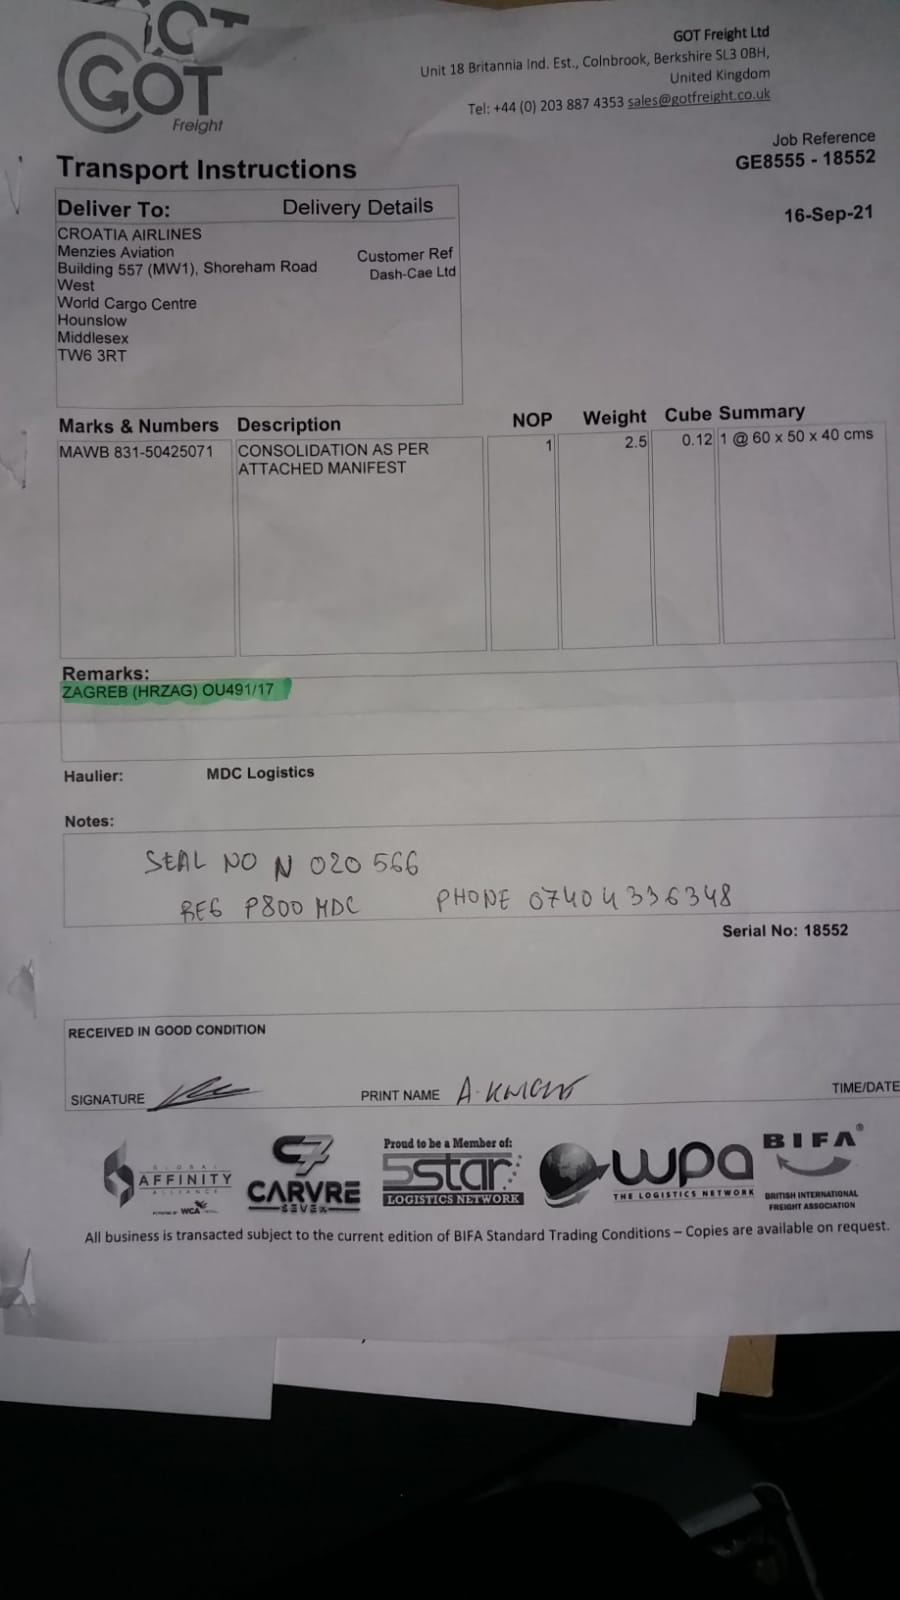 GOT
GOT
Freight
GOT Freight Ltd
Unit 18 Britannia Ind. Est., Colnbrook, Berkshire SL3 0BH,
United Kingdom
Tel: +44 (0) 203 887 4353 sales@gotfreight.co.uk
Job Reference
GE8555 - 18552
16-Sep-21
Transport Instructions
Deliver To: Delivery Details
CROATIA AIRLINES
Menzies Aviation
Building 557 (MW1), Shoreham Road
West
World Cargo Centre
Hounslow
Middlesex
TW6 3RT
Customer Ref
Dash-Cae Ltd
Marks & Numbers Description NOP Weight Cube Summary
MAWB 831-50425071 CONSOLIDATION AS PER 1 2.5 0.12 1 @ 60 x 50 x 40 cms
ATTACHED MANIFEST
Remarks:
ZAGREB (HRZAG) OU491/17
Haulier: MDC Logistics
Notes:
SEAL NO N 020 566
REG P800 MDC PHONE 07404336348
Serial No: 18552
RECEIVED IN GOOD CONDITION
SIGNATURE PRINT NAME A. TIME/DATE
GLOBAL
AFFINITY
ALLIANCE
WCA
C7
CARVRE
SEVEN
Proud to be a Member of:
5star
LOGISTICS NETWORK
wpa
THE LOGISTICS NETWORK
BIFA®
BRITISH INTERNATIONAL
FREIGHT ASSOCIATION
All business is transacted subject to the current edition of BIFA Standard Trading Conditions – Copies are available on request.